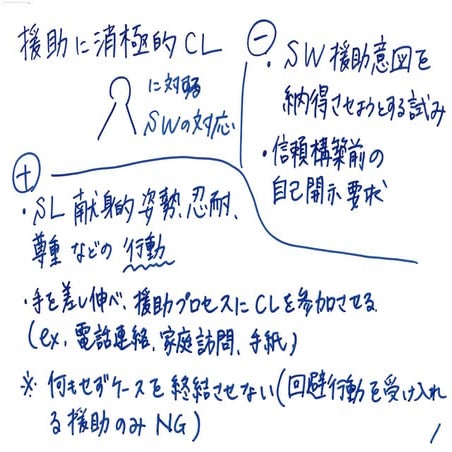 援助に消極的CL
に対する
SWの対応
⊖
・SW援助意図を
納得させようとする試み
・信頼構築前の
自己開示要求
⊕
・SL 献身的姿勢、忍耐、
尊重 などの 行動
・手を差し伸べ、援助プロセスにCLを参加させる
(ex, 電話連絡、家庭訪問、手紙)
※ 何もせずケースを終結させない(回避行動を受け入れ
る援助のみNG)